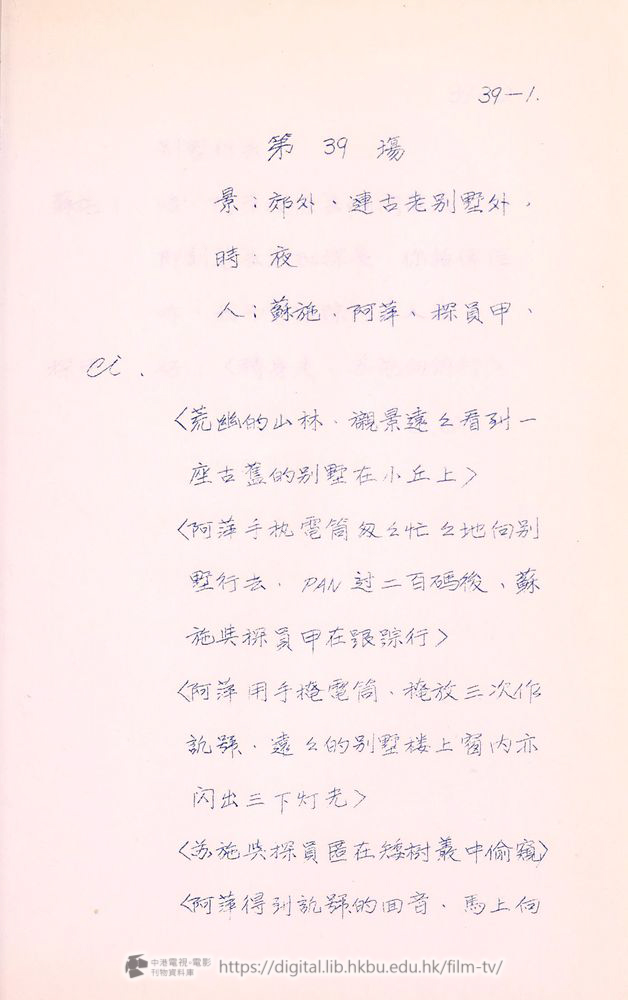 39-1.
第 39 場
景：郊外、連古老別墅外，
時 夜
人：蘇施、阿萍、探員甲、
ci.
〈荒幽的山林、襯景遠々看到一
座古舊的別墅在小丘上〉
〈阿萍手执電筒匆々忙々地向別
墅行去．PAN 过二百碼後、蘇
施與探員甲在跟踪行〉
〈阿萍用手掩電筒、掩放三次作
訊號．遠々的別墅楼上窗内亦
闪出三下灯光〉
〈苏施與探員匿在矮樹叢中偷窺〉
〈阿萍得到訊號的回音．馬上向
中港電視·電影
刊物資料庫
https://digital.lib.hkbu.edu.hk/film-tv/